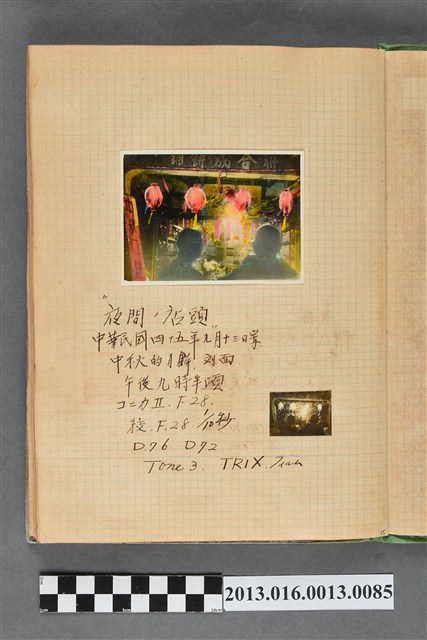 聯合成
"夜間ノ店頭"
中華民國四十五年九月十三日
中秋的 対面
午後九時半頃
コニカII. F.28.
絞. F.28. 秒
D76. D72
Tone 3. TRIX. フィルム
2013.016.0013.0085